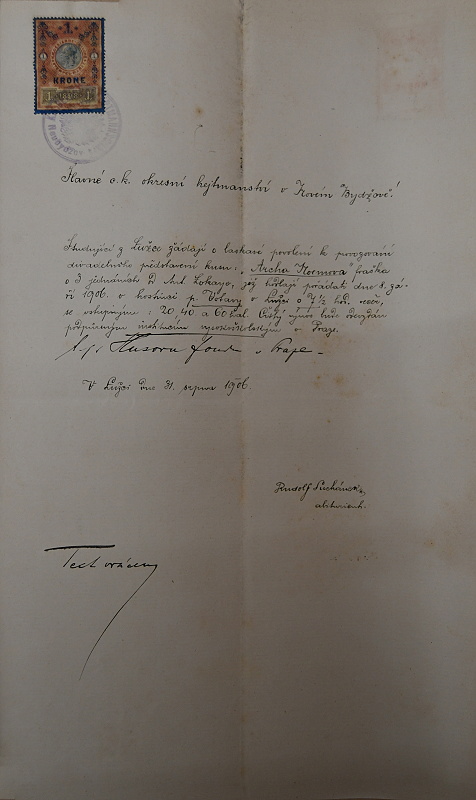 1
KRONE
1 1898 1
Slavné c. k. okresní hejtmanství v Novém Bydžově!
Studující z Lužce žádají o laskavé povolení k provozování
divadelního představení kusu: „Archa Noemova" fraška
o 3 jednáních od Ant. Lokaye, jež hodlají pořádati dne 8. zá-
ří 1906. v hostinci p. Votavy v Lužci o 7½ hod. večer,
se vstupným: 20, 40, a 60 hal. Čistý výnos bude odevzdán
podpůrným institucím vysokoškolským v Praze.
Husovu fondu v Praze
V Lužci dne 31. srpna 1906
Rudolf Suchánek,
abiturient.
Text vrácen